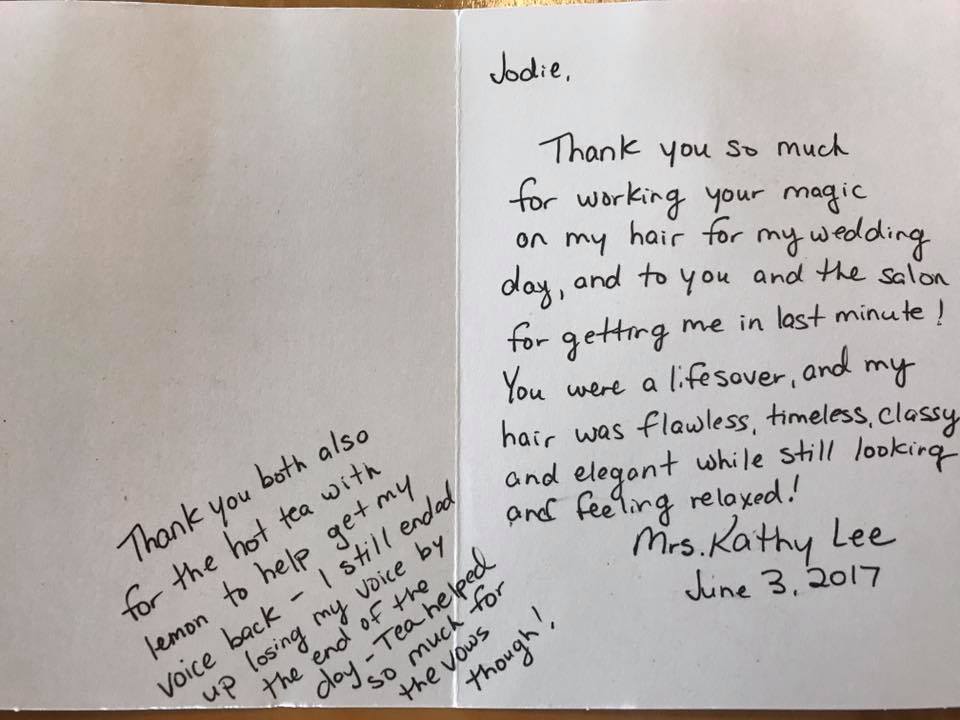 Jodie,
Thank you so much
for working your magic
on my hair for my wedding
day, and to you and the salon
for getting me in last minute!
You were a lifesaver, and my
hair was flawless, timeless, classy
and elegant while still looking
and feeling relaxed!
Mrs. Kathy Lee
June 3, 2017
Thank you both also
for the hot tea with
lemon to help get my
voice back - I still ended
up losing my voice by
the end of the
day - Tea helped
so much for
the vows
though!